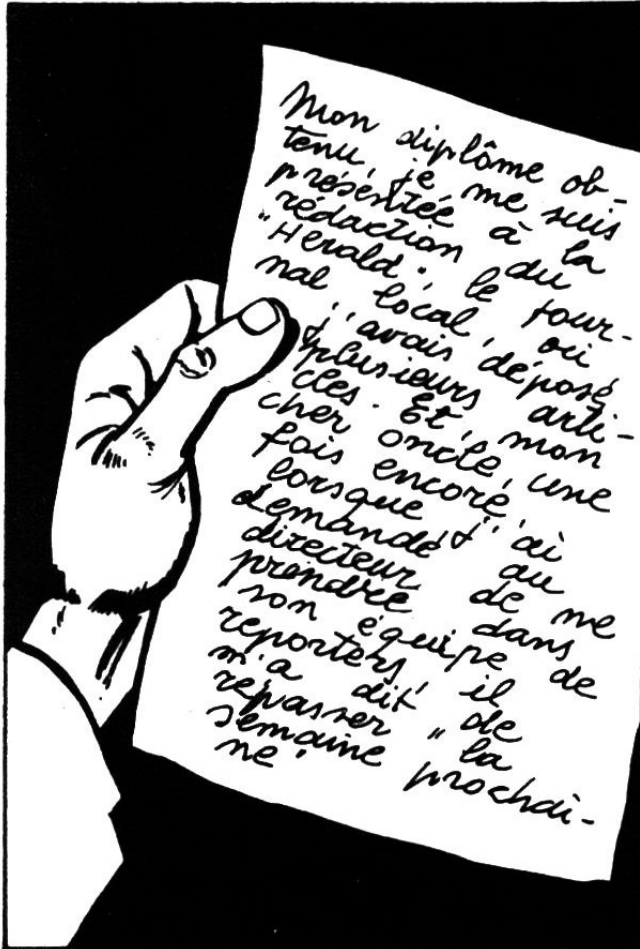 Mon diplôme ob-
tenu, je me suis
présentée à la
rédaction du
"Herald", le jour-
nal local, où
j'avais déposé
plusieurs arti-
cles. Et, mon
cher oncle, une
fois encore,
lorsque j'ai
demandé au
directeur de me
prendre dans
son équipe de
reporters, il
m'a dit de
repasser "la
semaine prochai-
ne".